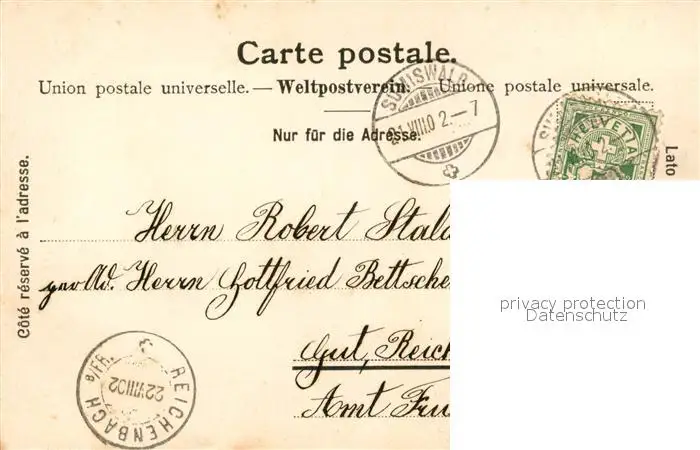 Carte postale.
Union postale universelle. — Weltpostverein. — Unione postale universale.
Nur für die Adresse.
Côté réservé à l'adresse.
Lato
SUMISWALD
VIII.02.–7
HELVETIA
Herrn Robert Stald
Herrn Gottfried Bettsche
Gut, Reich
Amt Fru
REICHENBACH B/FR.
22 VIII 02
privacy protection
Datenschutz